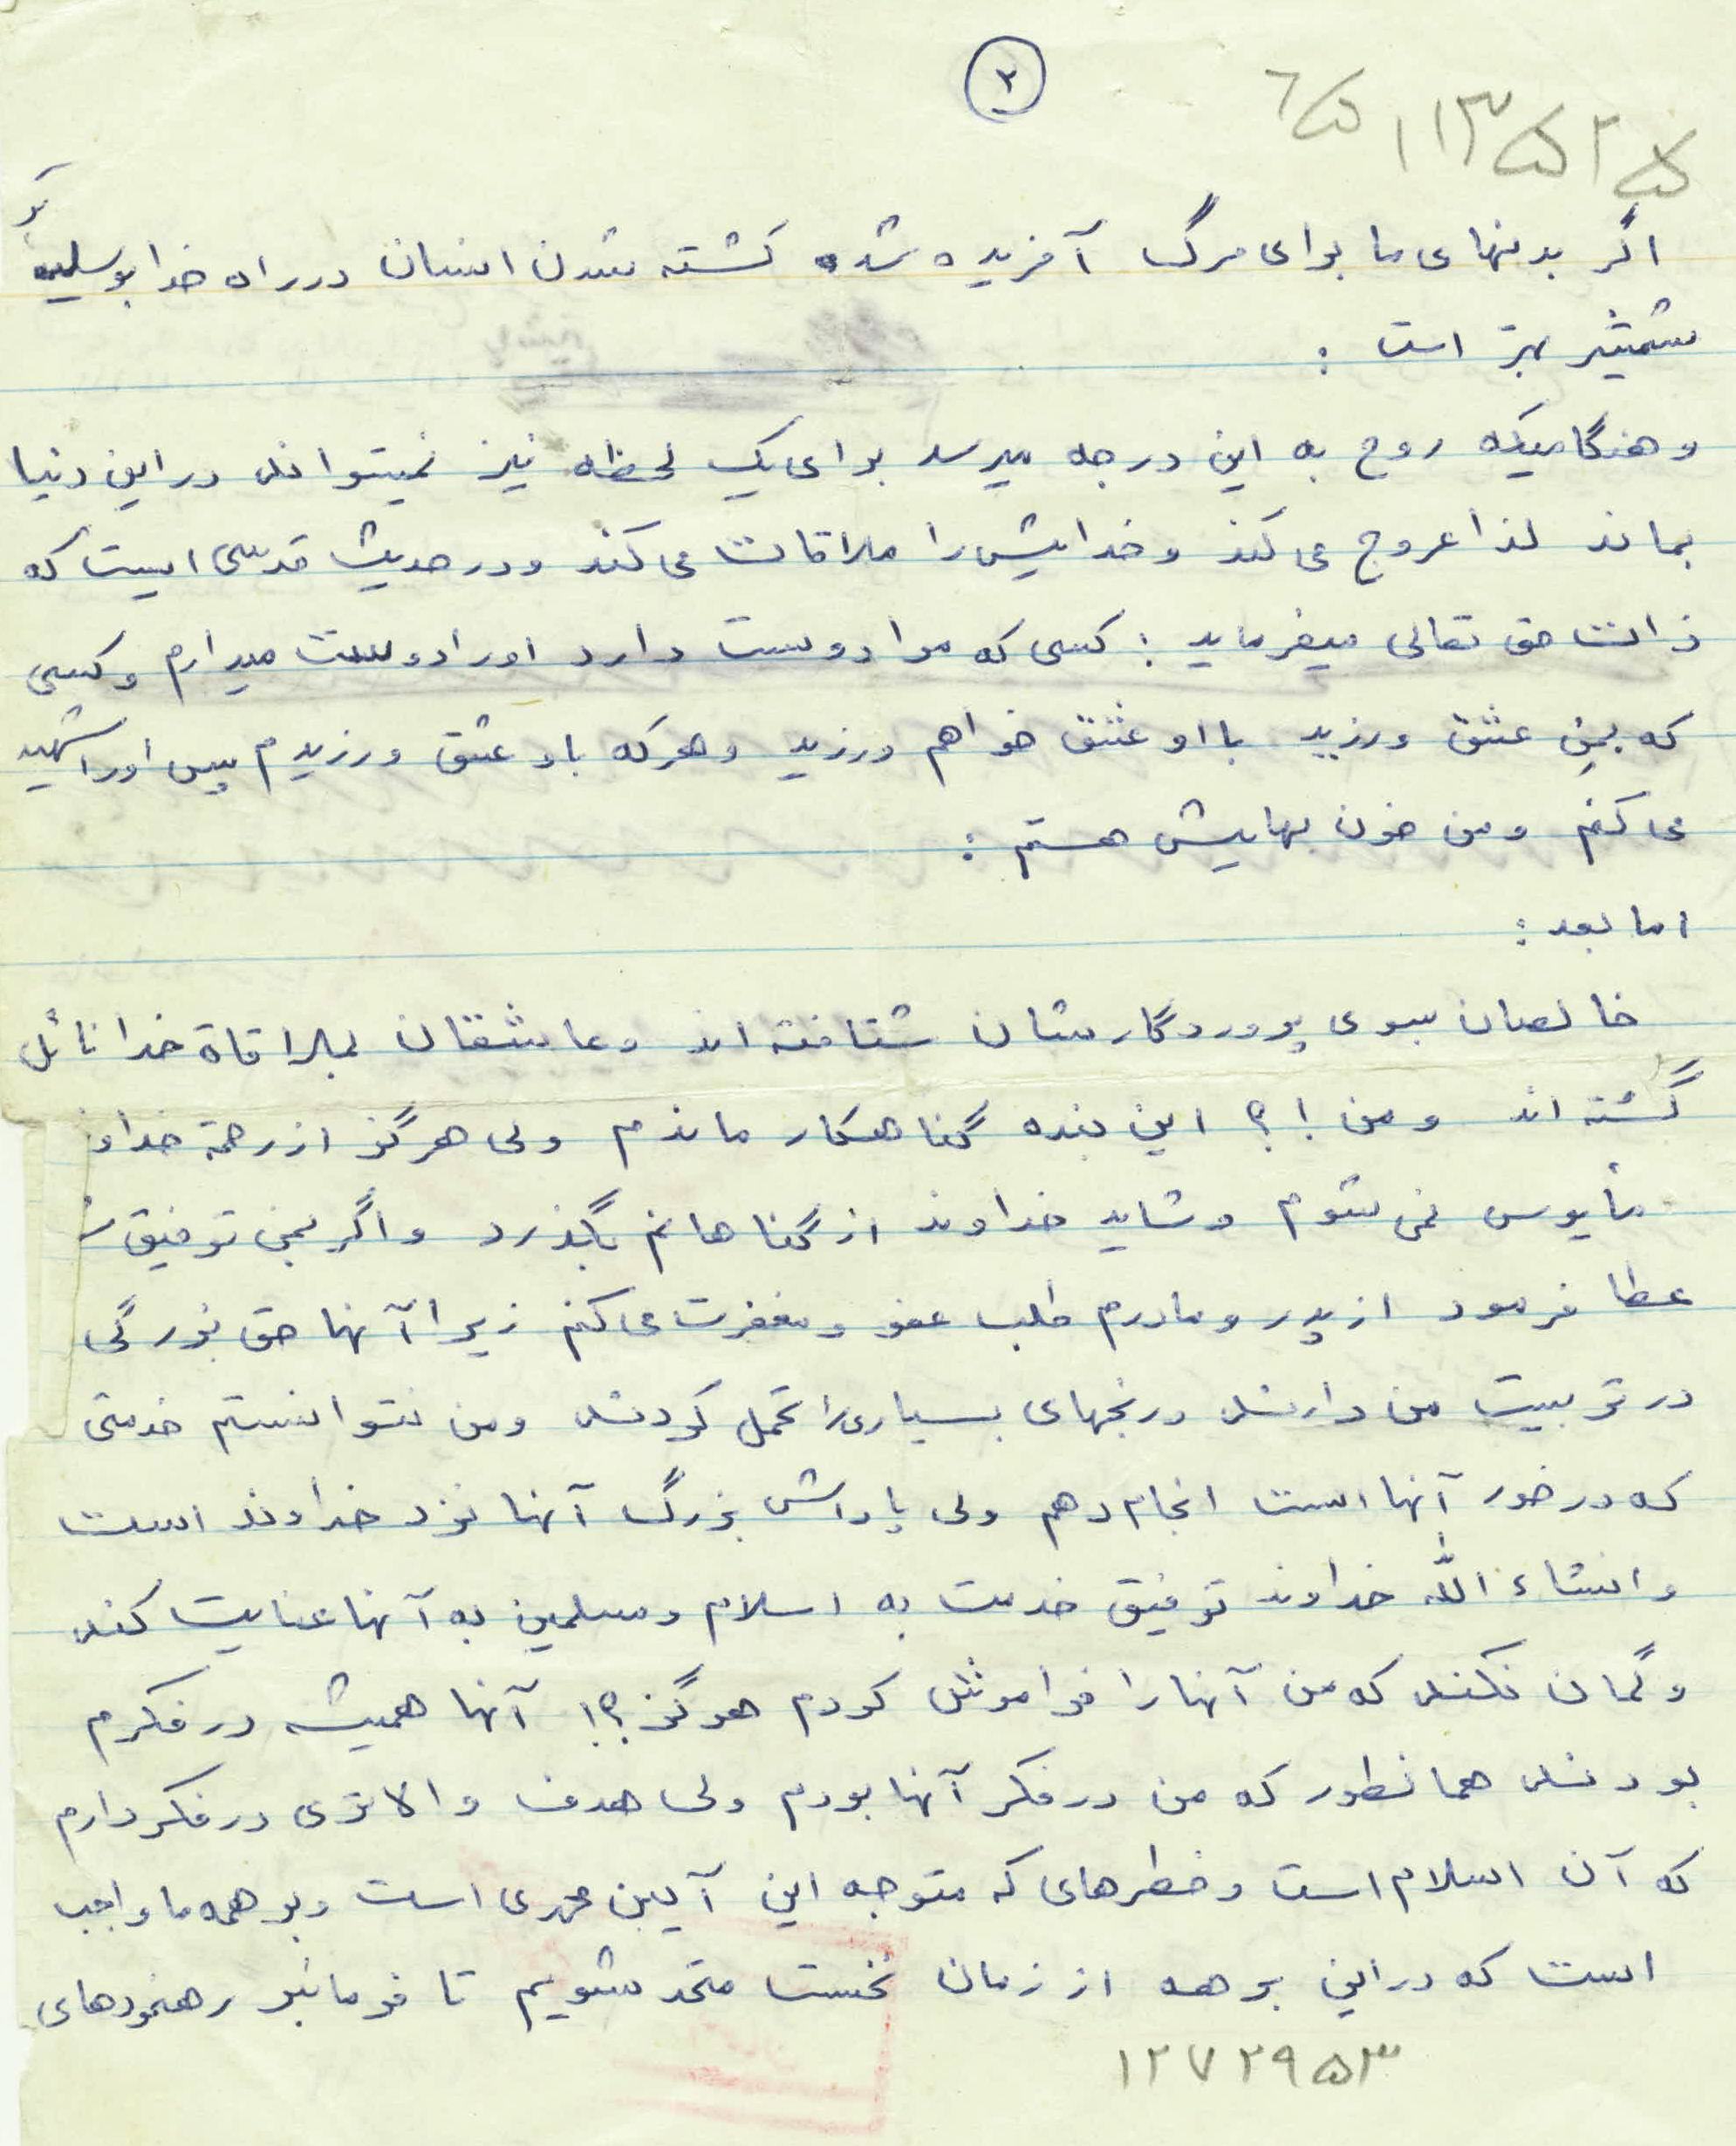 ۲
۶/۵ ۱۱۳۵۲۵
اگر بدنهای ما برای مرگ آفریده شده کشته شدن انسان در راه خدا بوسیلهٔ
شمشیر بهتر است :
و هنگامیکه روح به این درجه میرسد برای یک لحظه نیز نمیتواند در این دنیا
بماند لذا عروج می کند و خدایش را ملاقات می کند و در حدیث قدسی است که
ذات حق تعالی میفرماید : کسی که مرا دوست دارد او را دوست میدارم و کسی
که بمن عشق ورزید با او عشق خواهم ورزید و هر که با او عشق ورزیدم پس او را شهید
می کنم و من خون بهایش هستم :
اما بعد :
خالصان بسوی پروردگارشان شتافته اند و عاشقان بملاقاة خدا نائل
گشته اند و من !؟ این بنده گناهکار ماندم ولی هرگز از رحمة خداوند
مأیوس نمی شوم و شاید خداوند از گناهانم بگذرد و اگر بمن توفیق
عطا فرمود از پدر و مادرم طلب عفو و مغفرت می کنم زیرا آنها حق بزرگی
در تربیت من دارند و رنجهای بسیاری را تحمل کردند و من نتوانستم خدمتی
که در خور آنها است انجام دهم ولی پاداش بزرگ آنها نزد خداوند است
و انشاء الله خداوند توفیق خدمت به اسلام و مسلمین به آنها عنایت کند
و گمان نکنند که من آنها را فراموش کردم هرگز ؟! آنها همیشه در فکرم
بودند همانطور که من در فکر آنها بودم ولی هدف والاتری در فکر دارم
که آن اسلام است و خطرهای که متوجه این آیین محمدی است و بر همه ما واجب
است که در این برهه از زمان نخست متحد شویم تا فرمانبر رهنمودهای
۱۲۷۲۹۵۳